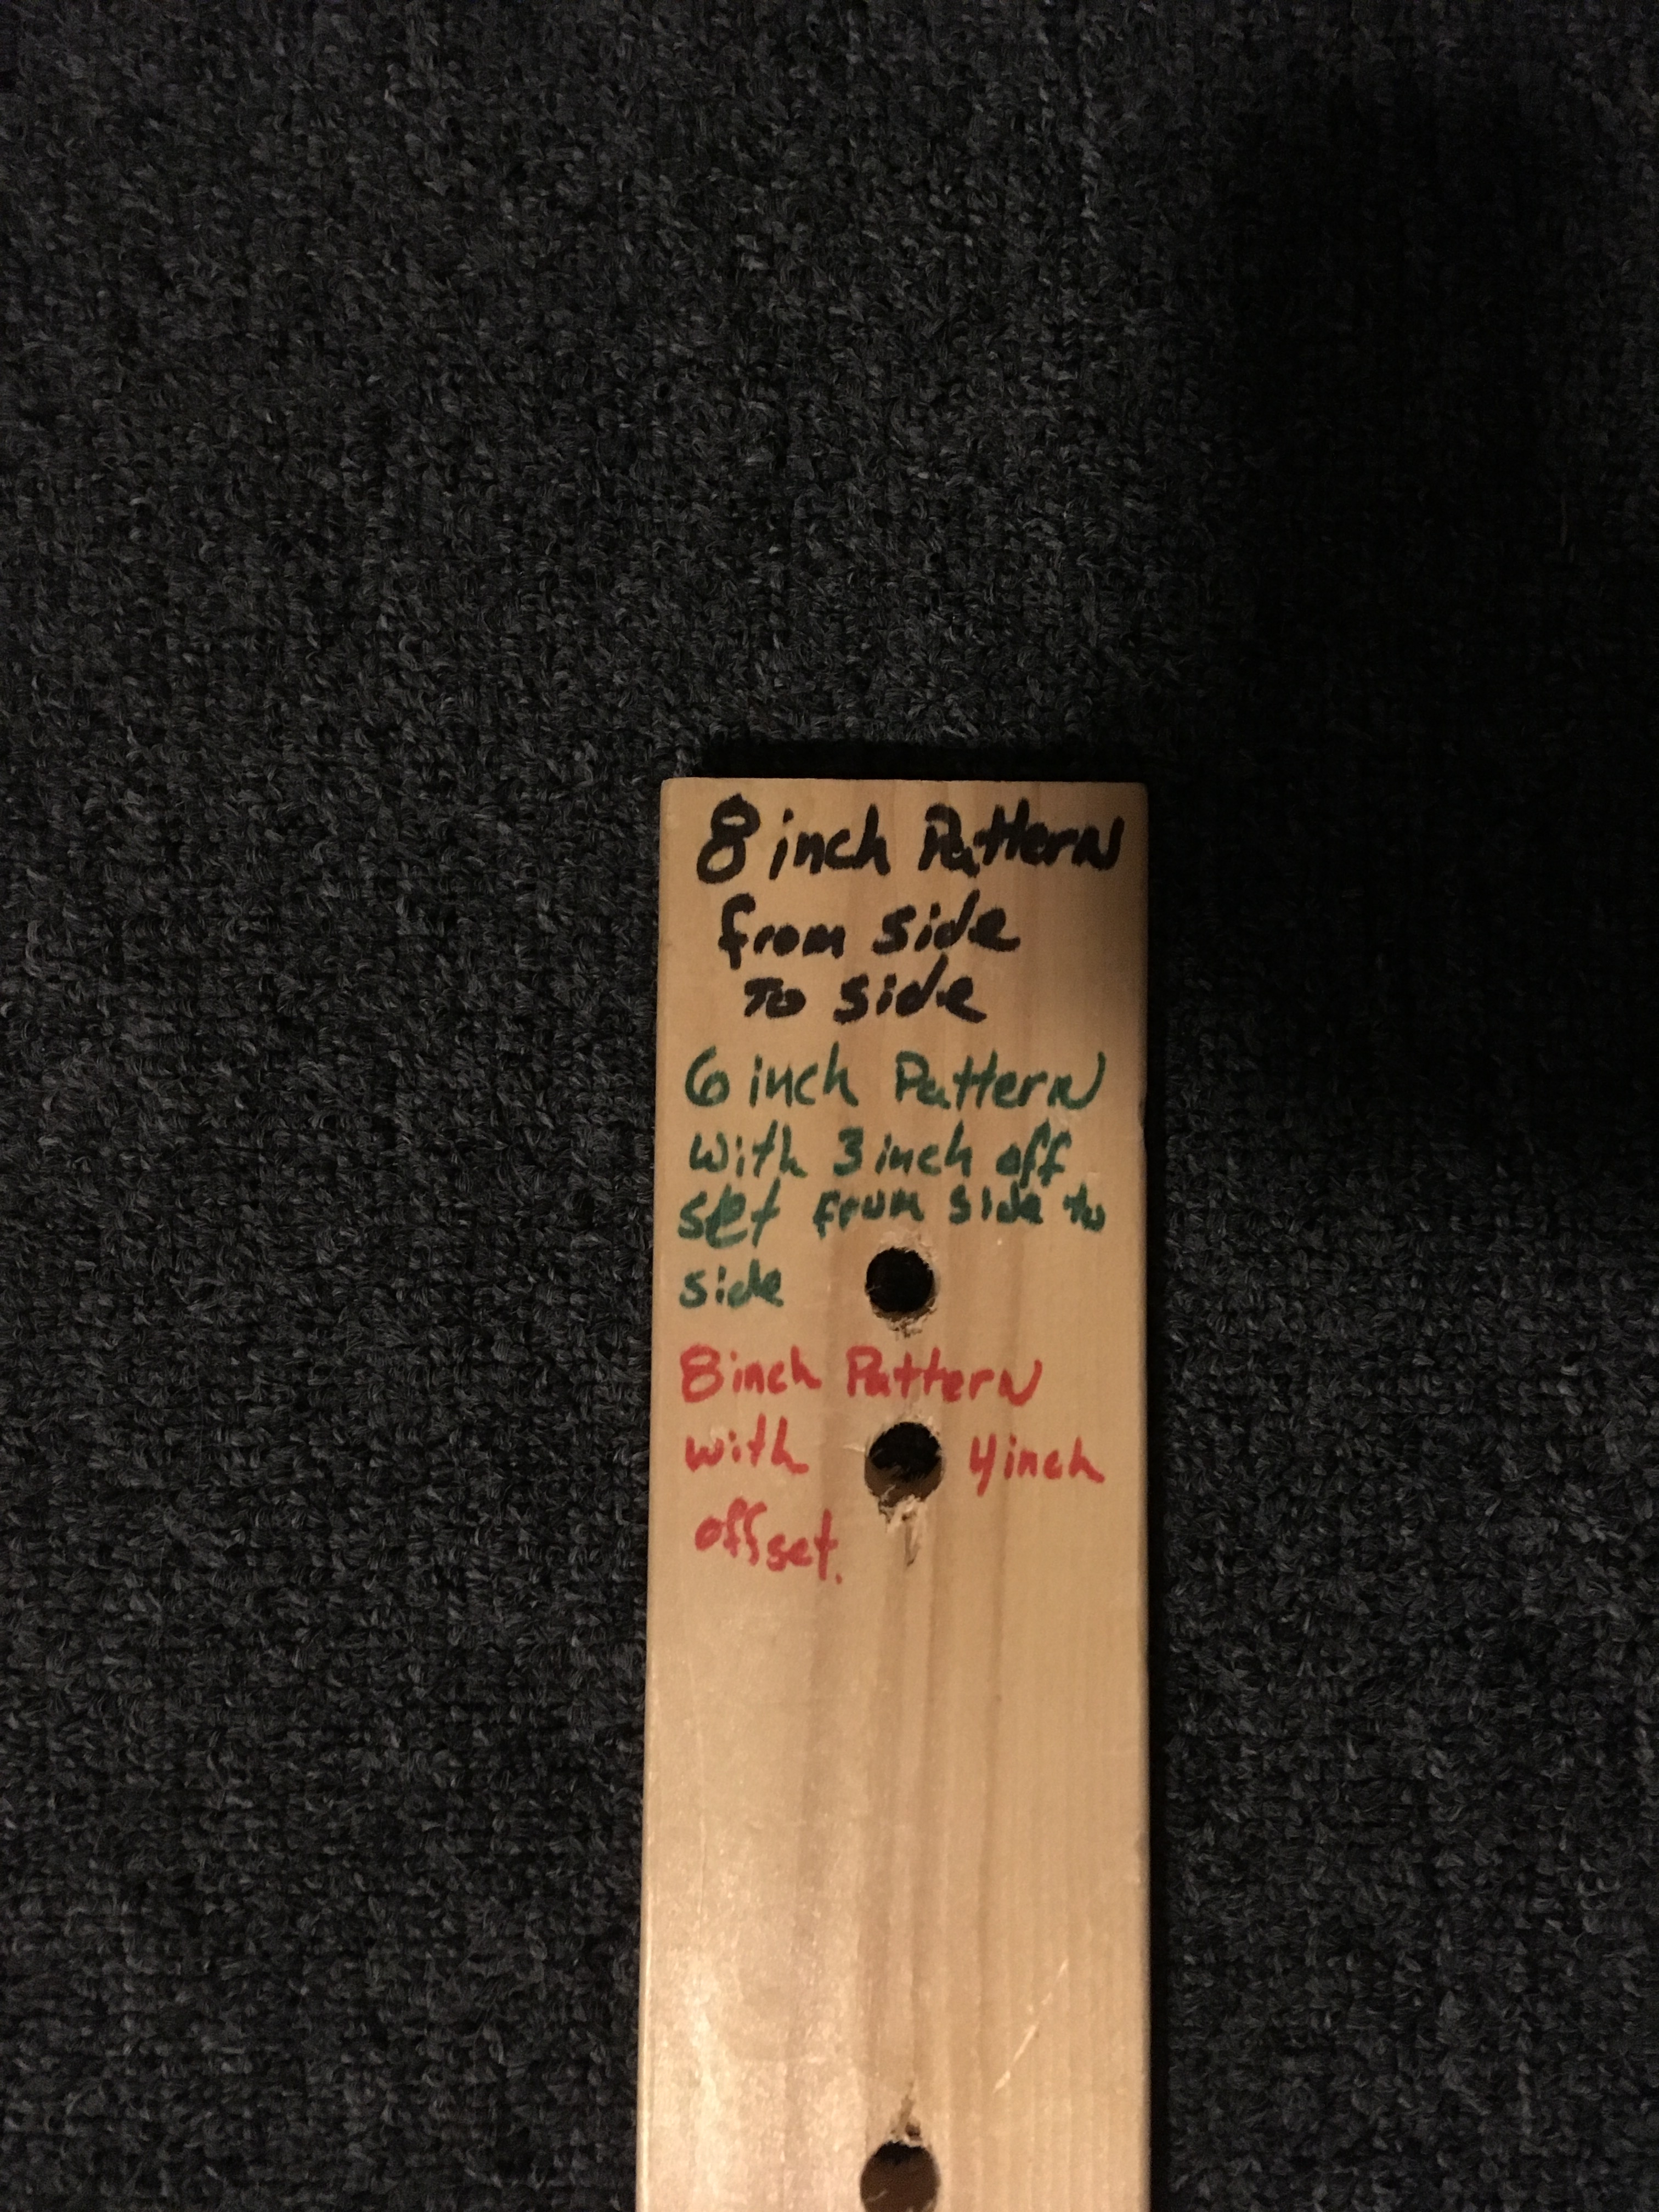 8 inch Pattern
from side
To side
6 inch Pattern
with 3 inch off
set from side to
side
8 inch Pattern
with 4 inch
offset.